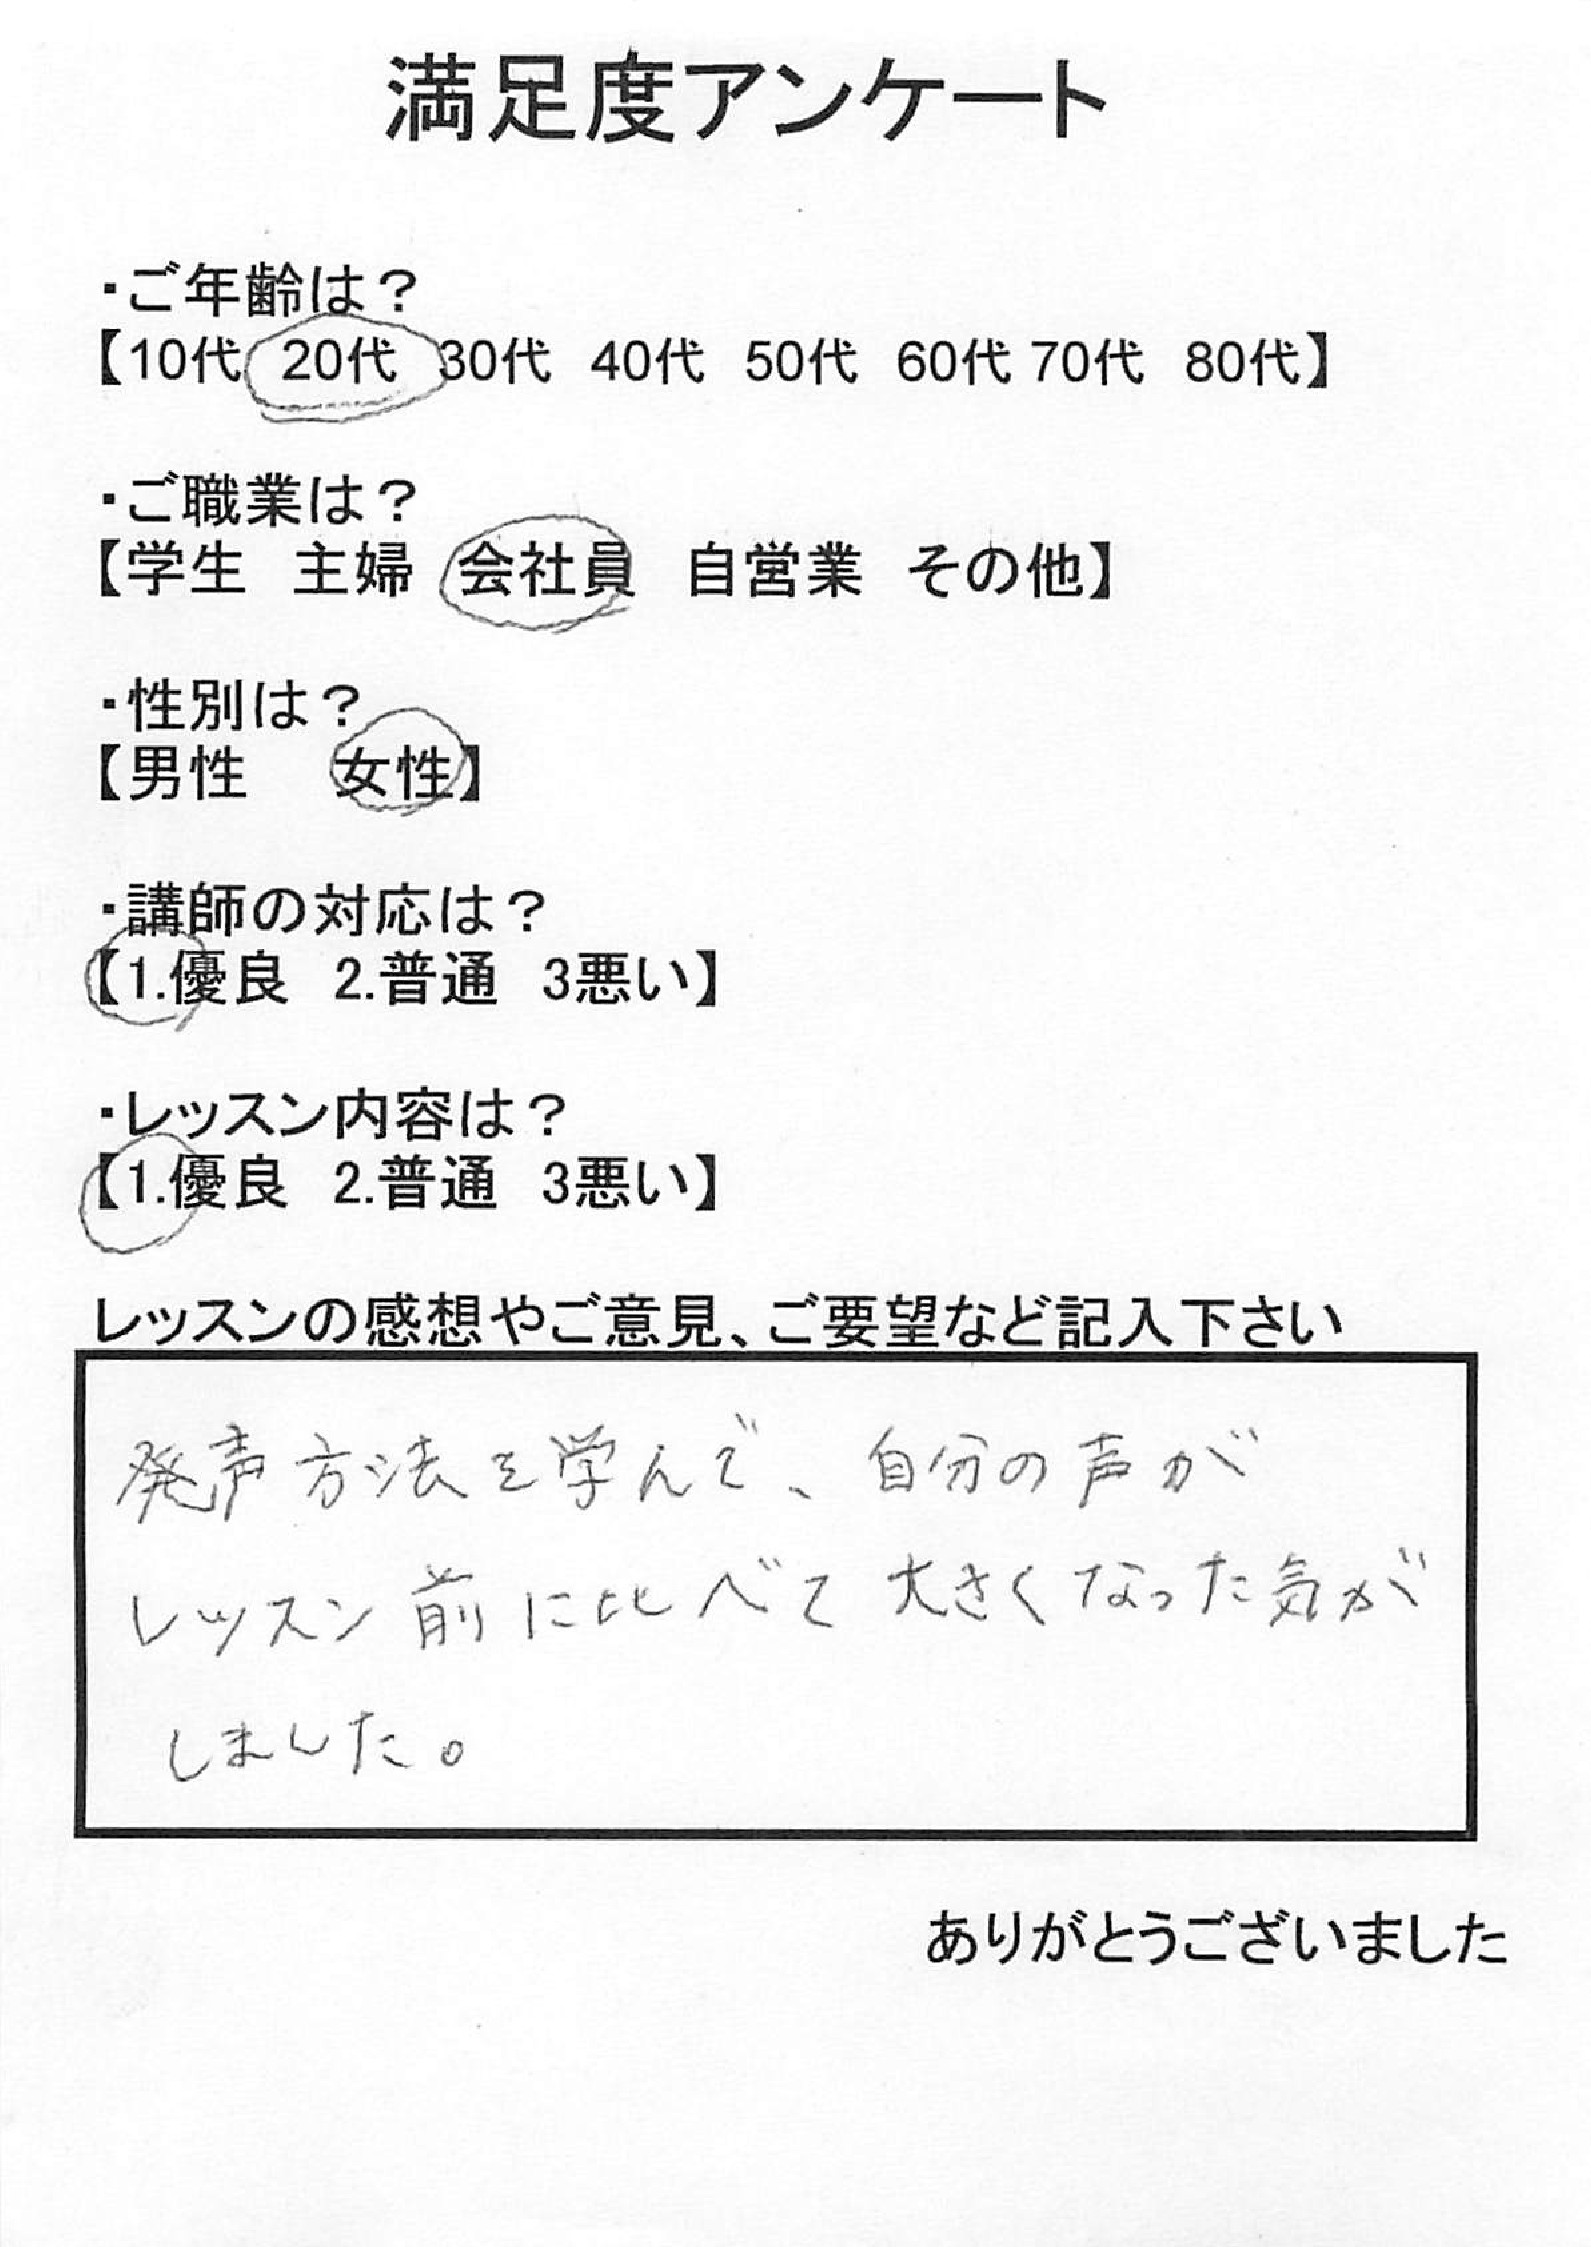 満足度アンケート
・ご年齢は？
【10代 20代 30代 40代 50代 60代 70代 80代】
・ご職業は？
【学生 主婦 会社員 自営業 その他】
・性別は？
【男性 女性】
・講師の対応は？
【1.優良 2.普通 3悪い】
・レッスン内容は？
【1.優良 2.普通 3悪い】
レッスンの感想やご意見、ご要望など記入下さい
発声方法を学んで、自分の声が
レッスン前に比べて大きくなった気が
しました。
ありがとうございました